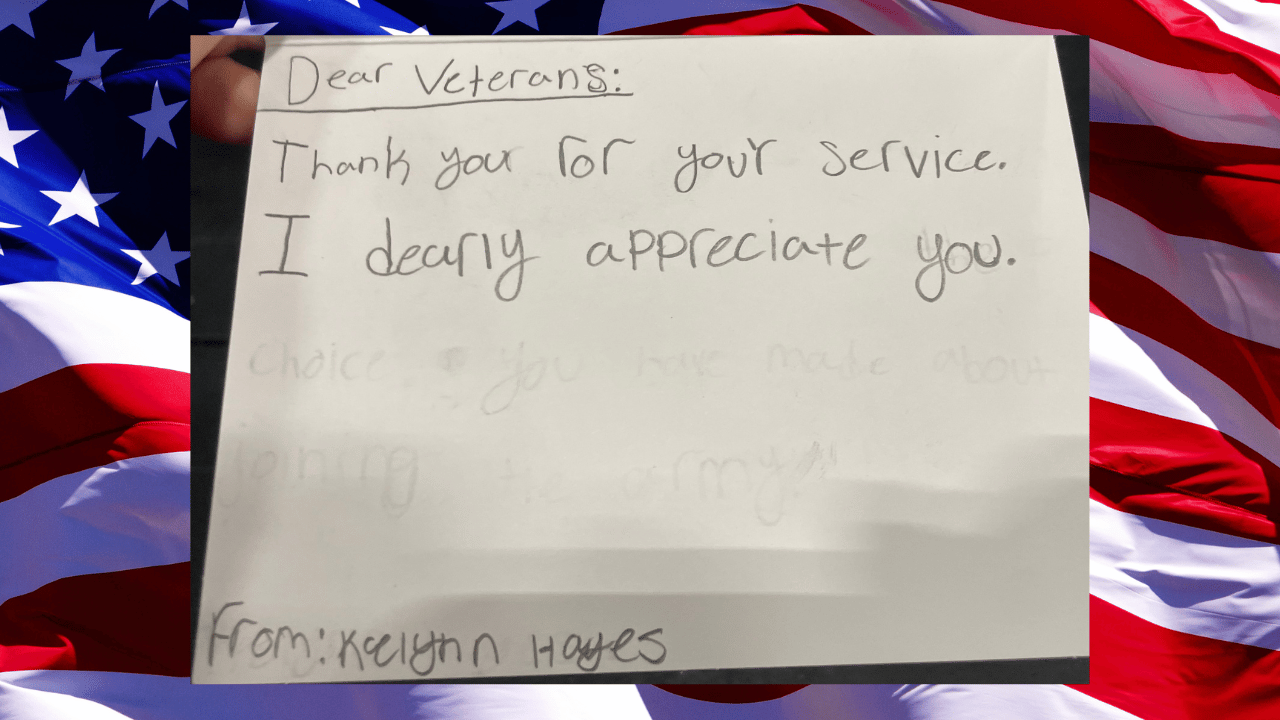 Dear Veterans:
Thank you for your service.
I dearly appreciate you.
choice you have made about
joining the army
From: Kaelynn Hayes